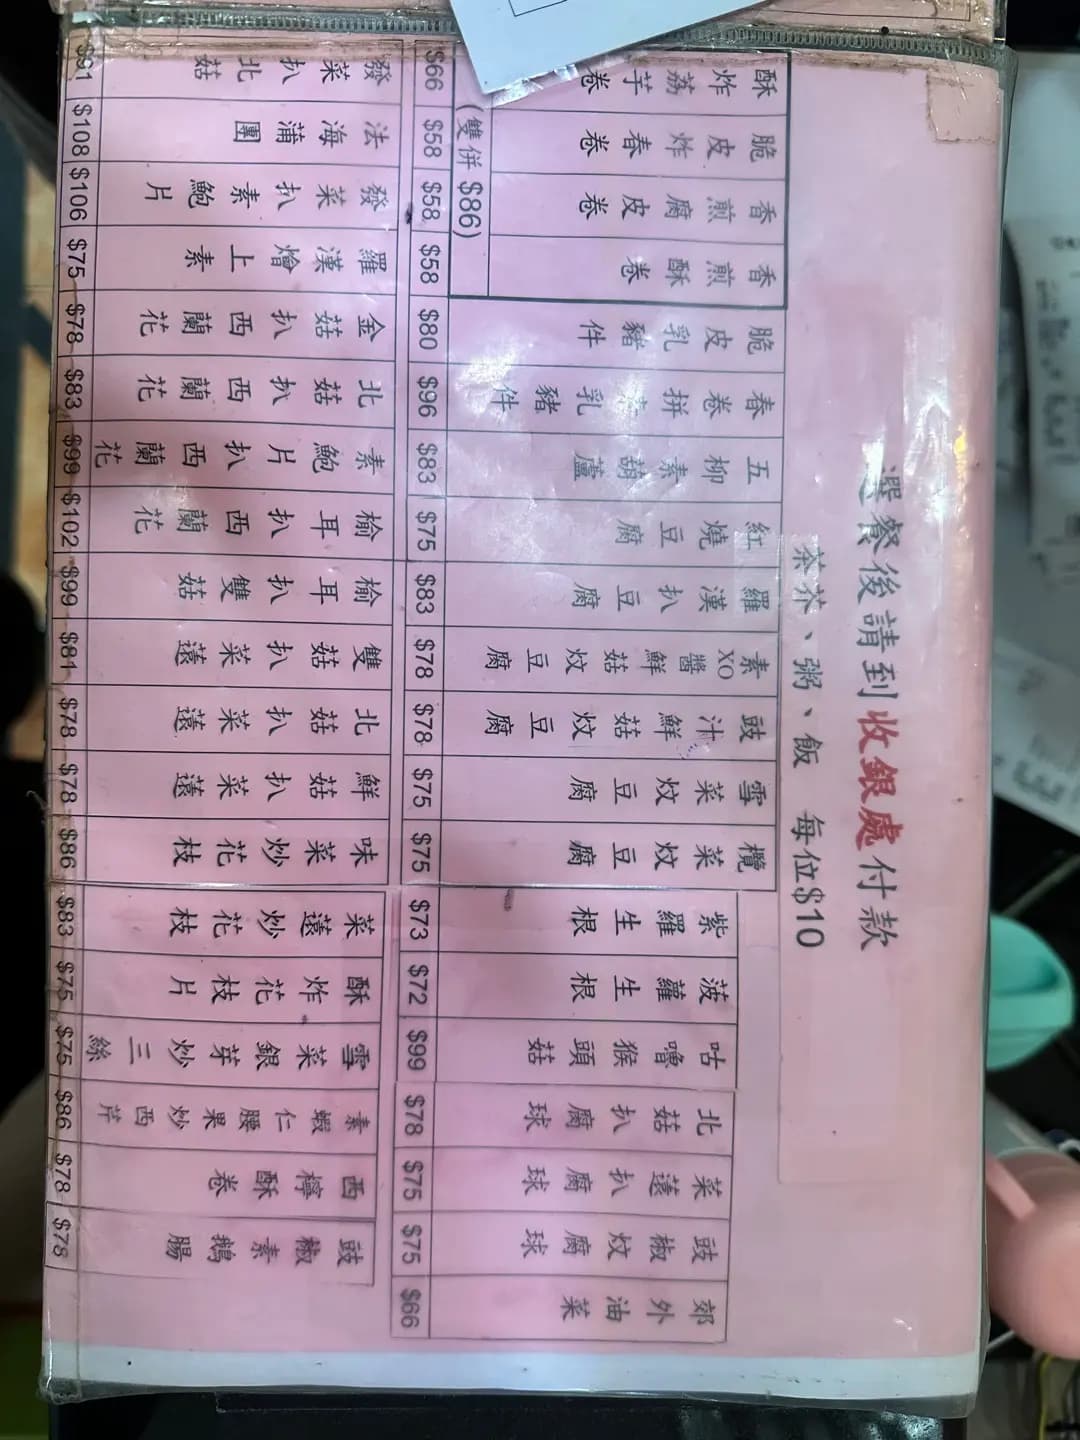 選餐後請到收銀處付款
茶芥、粥、飯 每位$10
酥炸荔芋卷 $66
脆皮炸春卷 $58
香煎腐皮卷 $58
香煎酥卷 $58
(雙併 $86)
脆皮乳豬件 $80
春卷拼乳豬件 $96
五柳素葫蘆 $83
紅燒豆腐 $75
羅漢扒豆腐 $83
素XO醬鮮菇炆豆腐 $78
豉汁鮮菇炆豆腐 $78
雪菜炆豆腐 $75
欖菜炆豆腐 $75
紫羅生根 $73
菠蘿生根 $72
咕嚕猴頭菇 $99
北菇扒腐球 $78
菜薳扒腐球 $75
豉椒炆腐球 $75
郊外油菜 $66
發菜扒北菇 $91
法海蒲團 $108
發菜扒素鮑片 $106
羅漢燴上素 $75
金菇扒西蘭花 $78
北菇扒西蘭花 $83
素鮑片扒西蘭花 $99
榆耳扒西蘭花 $102
榆耳扒雙菇 $99
雙菇扒菜薳 $81
北菇扒菜薳 $78
鮮菇扒菜薳 $78
味菜炒花枝 $86
菜薳炒花枝 $83
酥炸花枝片 $75
雪菜銀芽炒三絲 $75
素蝦仁腰果炒西芹 $86
西檸酥卷 $78
豉椒素鵝腸 $78